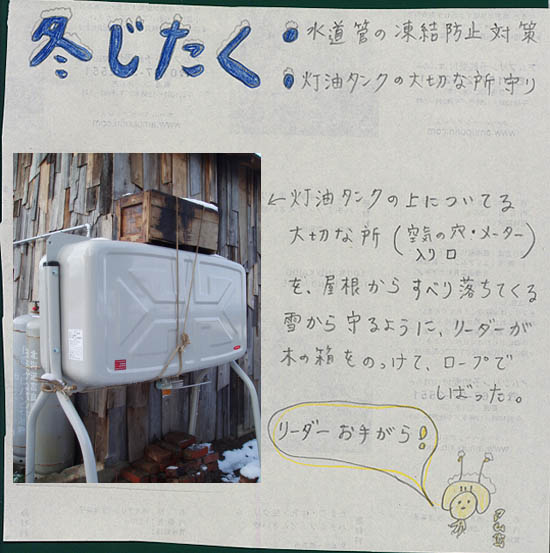 冬じたく
・水道管の凍結防止対策
・灯油タンクの大切な所守り
←灯油タンクの上についてる
大切な所（空気の穴・メーター入り口）
を、屋根からすべり落ちてくる
雪から守るように、リーダーが
木の箱をのっけて、ロープで
しばった。
リーダーお手がら！